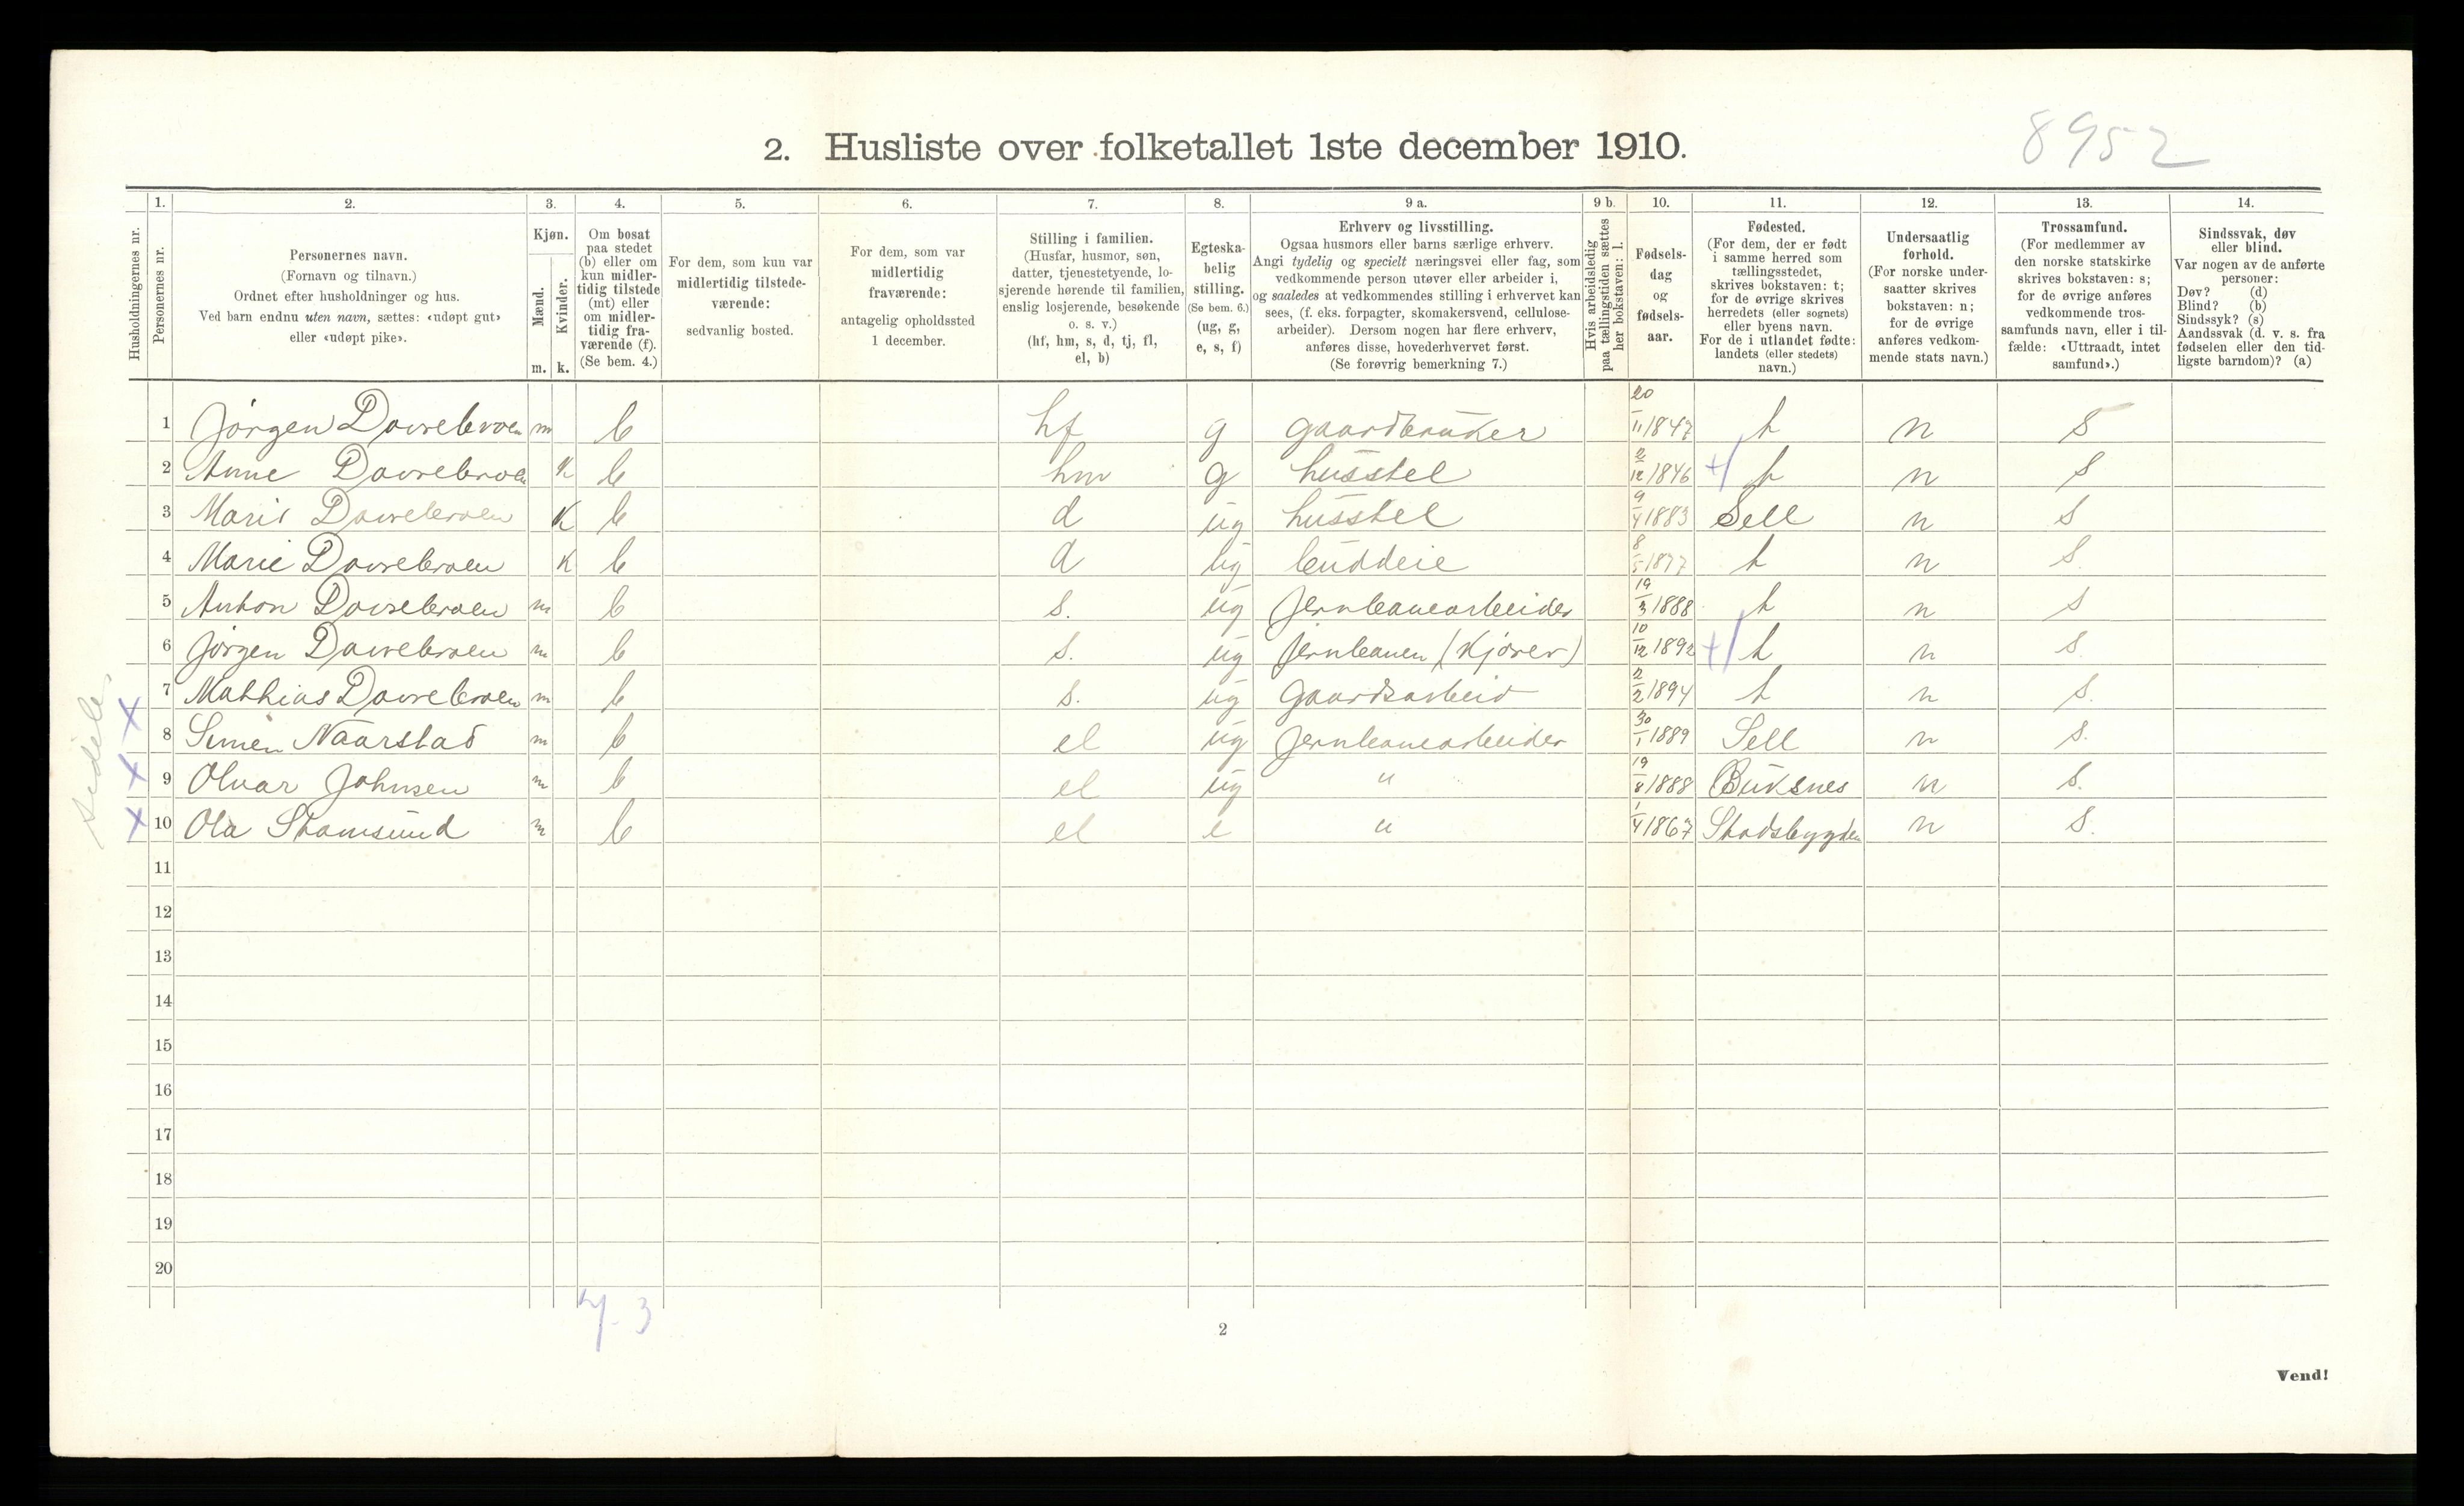 8952
2. Husliste over folketallet 1ste december 1910.
1. 2. 3. 4. 5. 6. 7. 8. 9 a. 9 b. 10. 11. 12. 13. 14.
Husholdningernes nr.
Personernes nr.
Personernes navn.
(Fornavn og tilnavn.)
Ordnet efter husholdninger og hus.
Ved barn endnu uten navn, sættes: «udøpt gut»
eller «udøpt pike».
Kjøn.
Mænd.
Kvinder.
m. k.
Om bosat
paa stedet
(b) eller om
kun midler-
tidig tilstede
(mt) eller
om midler-
tidig fra-
værende (f).
(Se bem. 4.)
For dem, som kun var
midlertidig tilstede-
værende:
sedvanlig bosted.
For dem, som var
midlertidig
fraværende:
antagelig opholdssted
1 december.
Stilling i familien.
(Husfar, husmor, søn,
datter, tjenestetyende, lo-
sjerende hørende til familien,
enslig losjerende, besøkende
o. s. v.)
(hf, hm, s, d, tj, fl,
el, b)
Egteska-
belig
stilling.
(Se bem. 6.)
(ug, g,
e, s, f)
Erhverv og livsstilling.
Ogsaa husmors eller barns særlige erhverv.
Angi tydelig og specielt næringsvei eller fag, som
vedkommende person utøver eller arbeider i,
og saaledes at vedkommendes stilling i erhvervet kan
sees, (f. eks. forpagter, skomakersvend, cellulose-
arbeider). Dersom nogen har flere erhverv,
anføres disse, hovederhvervet først.
(Se forøvrig bemerkning 7.)
Hvis arbeidsledig
paa tællingstiden sættes
her bokstaven: l.
Fødsels-
dag
og
fødsels-
aar.
Fødested.
(For dem, der er født
i samme herred som
tællingsstedet,
skrives bokstaven: t;
for de øvrige skrives
herredets (eller sognets)
eller byens navn.
For de i utlandet fødte:
landets (eller stedets)
navn.)
Undersaatlig
forhold.
(For norske under-
saatter skrives
bokstaven: n;
for de øvrige
anføres vedkom-
mende stats navn.)
Trossamfund.
(For medlemmer av
den norske statskirke
skrives bokstaven: s;
for de øvrige anføres
vedkommende tros-
samfunds navn, eller i til-
fælde: «Uttraadt, intet
samfund».)
Sindssvak, døv
eller blind.
Var nogen av de anførte
personer:
Døv? (d)
Blind? (b)
Sindssyk? (s)
Aandssvak (d. v. s. fra
fødselen eller den tid-
ligste barndom)? (a)
1 Jörgen Dovrebroen m b hf g gaardbruker 20/11 1847 t n S
2 Anne Dovrebroen K b hm g husstel 2/12 1846 t n S
3 Marit Dovrebroen K b d ug husstel 9/4 1883 Sell n S
4 Marie Dovrebroen K b d ug buddeie 8/5 1877 t n S.
5 Anton Dovrebroen m b s. ug Jernbanearbeider 19/3 1888 t n S
6 Jörgen Dovrebroen m b s. ug Jernbanen (Kjörer) 10/12 1892 t n S.
7 Mathias Dovrebroen m b s. ug Gaardsarbeid 2/2 1894 t n S.
X 8 Simen Naarstad m b el ug Jernbanearbeider 30/1 1889 Sell n S.
X 9 Olvar Johnsen m b el ug " 19/8 1888 Buksnes n S.
X 10 Ola Stamsund m b el e " 1/4 1867 Stadsbygden n S.
11
12
13
14
15
16
17
18
19
20
2
Vend!